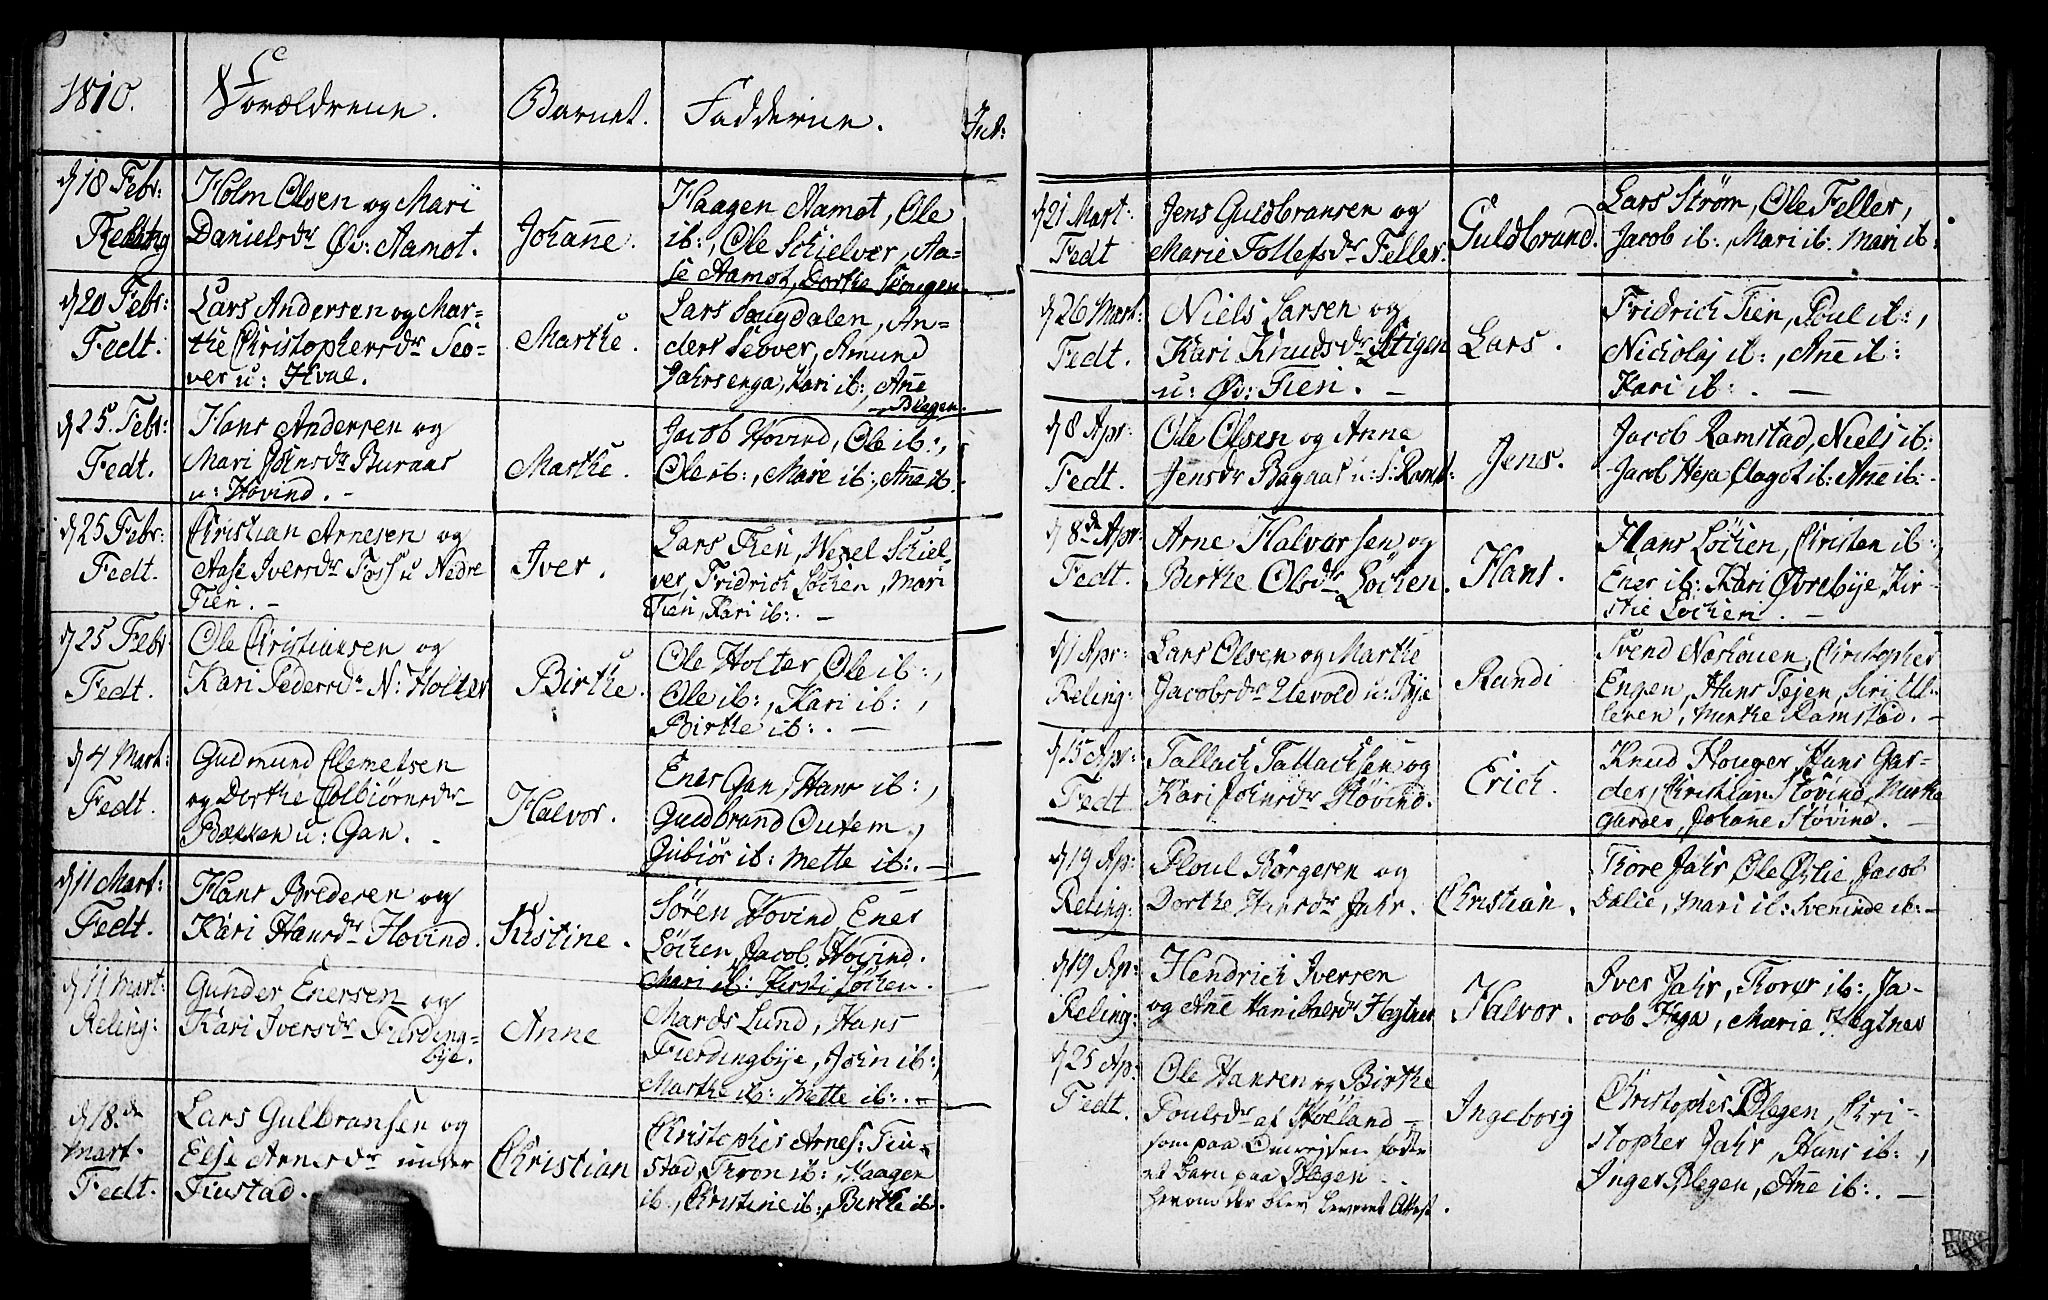 1810.
Forældrene.
Barnet.
Fadderne.
Int:
d 18 Febr:
Reling
Holm Olsen og Mari
Danielsdr Øv: Aamot.
Johanne.
Haagen Aamot, Ole
ib:, Ole Schielver, Aa-
se Aamot, Dorthe Skougen.
d 20 Febr:
Fedt.
Lars Andersen og Mar-
the Christophersdr Seo-
ver u: Hval.
Marthe.
Lars Saugdalen, An-
ders Seover, Amund
Jahrsenga, Kari ib:, Anne
Blegen.
d 25 Febr:
Fedt.
Hans Andersen og
Mari Johnsdr Buraas
u: Hovind. -
Marthe.
Jacob Hovind, Ole ib:,
Ole ib:, Marie ib:, Anne ib.
d 25 Febr:
Fedt.
Christian Arnesen og
Aase Iversdr Foss u Nedre
Fien. -
Iver.
Lars Fien, Wexel Schiel
ver, Fridrich Løchen, Mari
Fien, Kari ib:. -
d 25 Febr
Fedt.
Ole Christiansen og
Kari Pedersdr N: Holter
Birthe.
Ole Holter, Ole ib:,
Ole ib:, Kari ib:,
Birthe ib:. -
d 4 Mart:
Fedt.
Gudmund Clemetsen
og Dorthe Colbiørnsdr
Bækken u: Gan. -
Halvor.
Ener Gan, Hans ib:,
Guldbrand Outem,
Gubiør ib: Mette ib:. -
d 11 Mart:
Fedt.
Hans Bredesen og
Kari Hansdr Hovind.
Kistine.
Søren Hovind, Ener
Løchen, Jacob Hovind.
Mari ib: Kirsti Løchen.
d 11 Mart:
Reling:
Gunder Enersen og
Kari Iversdr Fierding-
bye.
Anne
Mards Lund, Hans
Fierdingbye, John ib:,
Marthe ib: Mette ib:. -
d 18.de
Mart.
Fedt.
Lars Gulbransen og
Else Arnesdr under
Finstad.
Christian
Christopher Arnes: Fin-
stad, Thron ib:, Haagen
ib:, Christine ib:, Birthe ib.
d 21 Mart:
Fedt
Jens Guldbransen og
Marie Tollefsdr Feller.
Guldbrand.
Lars Strøm, Ole Feller,
Jacob ib:, Mari ib: Mari ib:
d 26 Mart:
Fedt.
Niels Larsen og
Kari Knudsdr Stigen
u: Øv: Fien. -
Lars.
Fridrich Fien, Poul ib:,
Nickolaj ib:, Anne ib:
Kari ib:. -
d 8 Apr:
Fedt.
Ole Olsen og Anne
Jensdr Bagaas u: S: Ramst.
Jens.
Jacob Ramstad, Niels ib:
Jacob Heja Olagot ib: Anne ib: -
d 8de Apr:
Fedt.
Arne Halvorsen og
Birthe Olsdr Løchen.
Hans.
Hans Løchen, Christen ib:,
Ener ib: Kari Øvrebye, Kir-
stie Løchen. -
d 1 Apr:
Reling:
Lars Olsen og Marthe
Jacobsdr Uevold u: Bye
Randi
Svend Naskouen, Christopher
Engen, Hans Tejen, Siri Ul-
leren, Mirthe Ramstad. -
d 15 Ap:
Fedt
Tallach Tallachsen og
Kari Johnsdr Støvind.
Erich.
Knud Houger, Hans Gar-
der, Christian Støvind, Mirthe
Garder, Johane Støvind. -
d 19 Ap:
Reling:
Ploul Børgesen og
Dorthe Hansdr Jahr.
Christian.
Thore Jahr Ole Ørlie, Jacob
Dalie, Mari ib: Sveninde ib: -
d 19 Ap:
Reling:
Hendrich Iversen
og Anne Hanibalsdr Hegtner
Halvor.
Iver Jahr, Thorer ib:, Ja-
cob Haga, Marie Hegtner
d 25 Ap:
Fedt.
Ole Hansen og Birthe
Poulsdr af Høland -
som paa Omrejsen fødte
et Barn paa Blegen -
hvorom der blev leveret Attest.
Ingeborg
Christopher Blegen, Chri-
stopher Jahr, Hans ib:,
Inger Blegen, Ane ib:. -